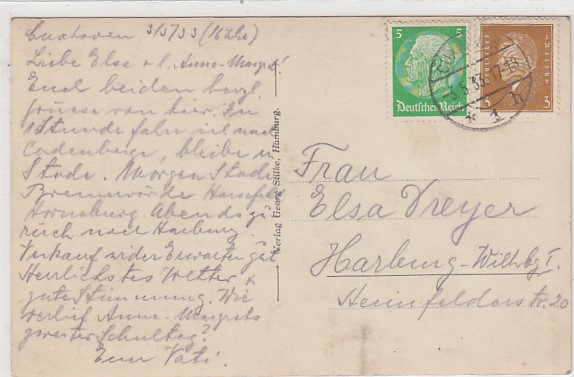 Cuxhaven 3/5/33 (16 Uhr)
Liebe Elsa u. l. Anne-Margret!
Euch beiden herzl.
Grüsse von hier. In
1 Stunde fahr ich nach
Cadenberge, bleibe in
Stade. Morgen Stade
Bremervörde Harsefeld
Horneburg. Abends zu
rück nach Harburg.
Verkauf wider Erwarten gut
Herrlichstes Wetter &
gute Stimmung. Wie
verlief Anne-Margrets
zweiter Schultag?
Euer Vati.
Verlag Georg Stilke, Hamburg.
5 5
Deutsches Reich
3 3
33.17-18
* 1 h
Frau
Elsa Dreyer
Harburg-Wilhbg 1.
Heimfelderstr. 20